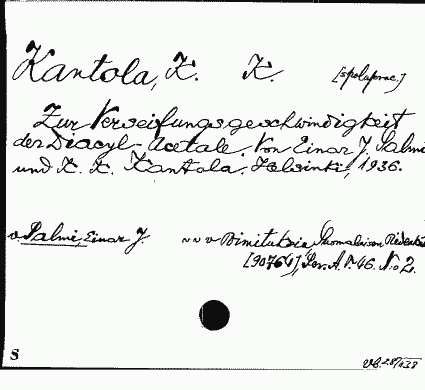 Kantola, K. K. [spoluprac.]
Zur Verseifungsgeschwindigkeit
der Diacyl-Acetale. Von Einar J. Salmi
und K. K. Kantola. Helsinki, 1936.
v. Salmi, Einar J. ~ ~ v Suomalaisen Tiedeakat
[90764], Ser. A. T. 46. No 2.
S